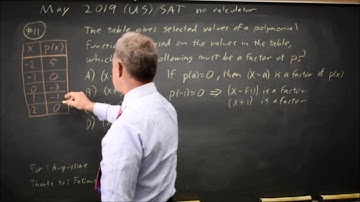 May 2019 (US) SAT no calculator
#11
The table gives selected values of a polynomial
function based on the values in the table,
which following must be a factor of p?
x p(x)
-2 5
-1 0
0 -3
2 0
A) (x If p(a)=0, then (x-a) is a factor of p(x)
B) (x p(-1)=0 ⇒ (x-(-1)) is a factor
(x+1) is a factor
D)
For: Augustine
Thanks to: Fatima